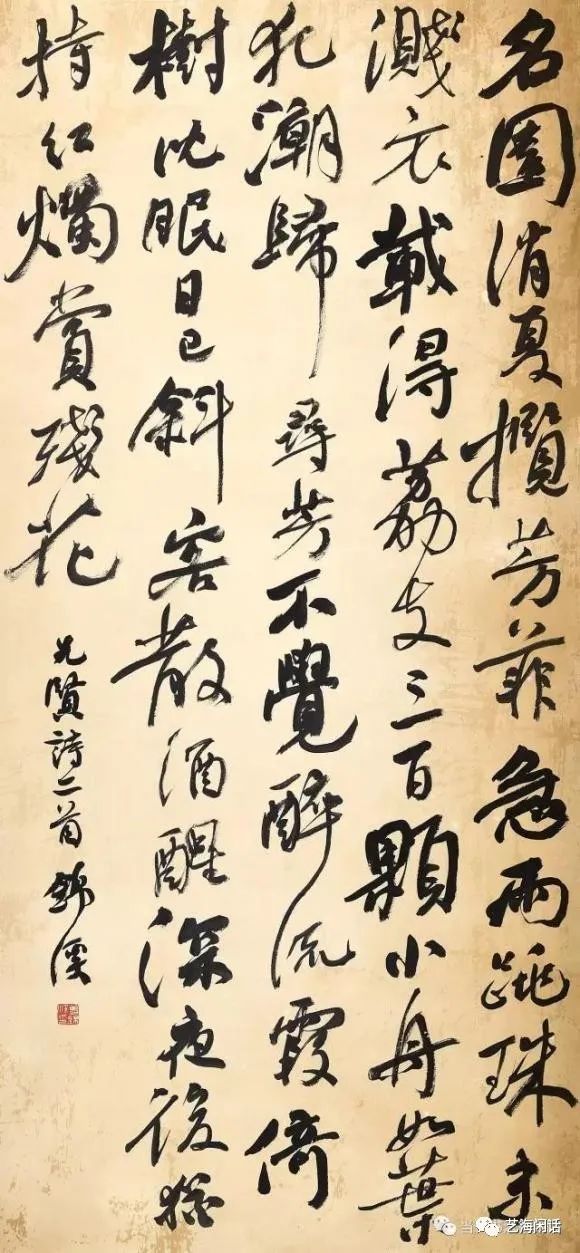 名園消夏攬芳菲急雨跳珠未
濺衣載得荔支三百顆小舟如葉
犯潮歸 尋芳不覺醉流霞倚
樹沈眠日已斜客散酒醒深夜後猶
持紅燭賞殘花
先賢詩二首 錦
艺海闲话